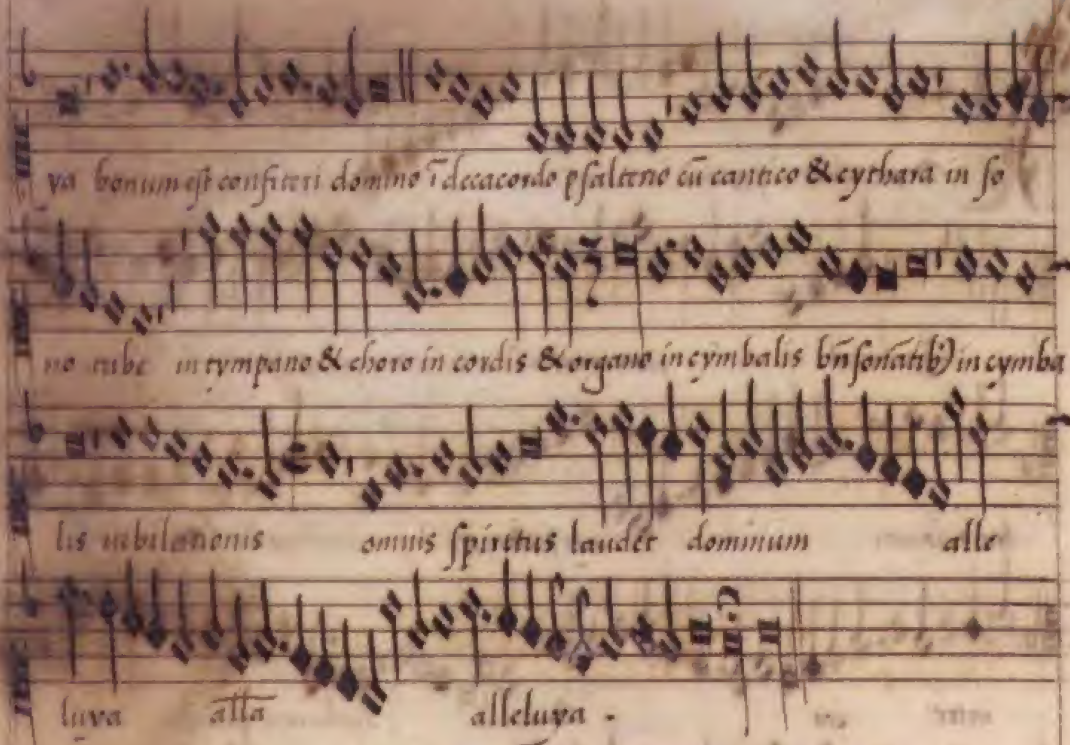 ya bonum est confiteri domino ī decacordo psalterio cū cantico & cythara in so
no tube in tympano & choro in cordis & organo in cymbalis bn̄ sonātib) in cymba
lis iubilationis omnis spiritus laudet dominum alle
luya alla alleluya .